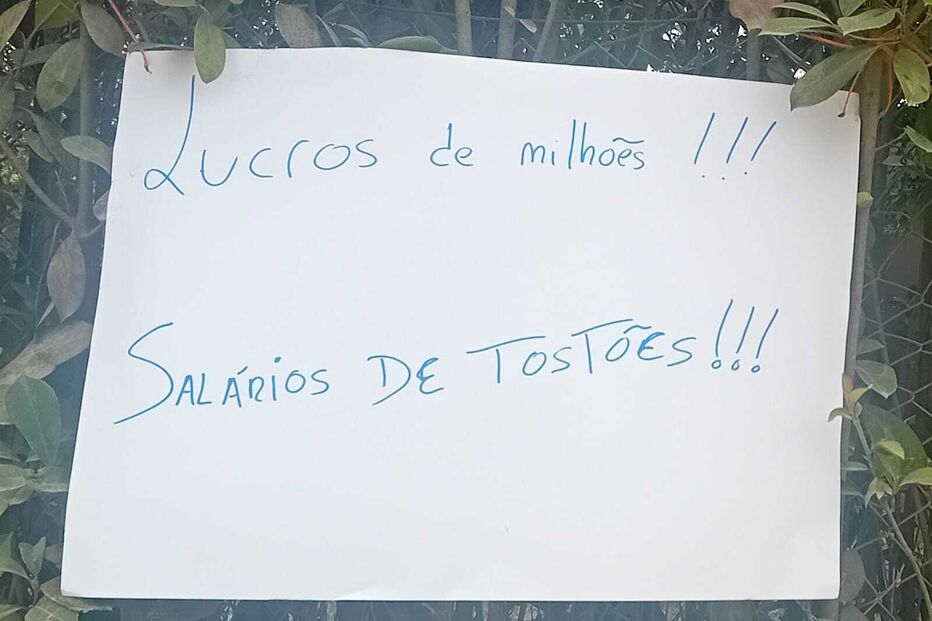 Lucros de milhões !!!
SALÁRIOS DE TOSTÕES!!!